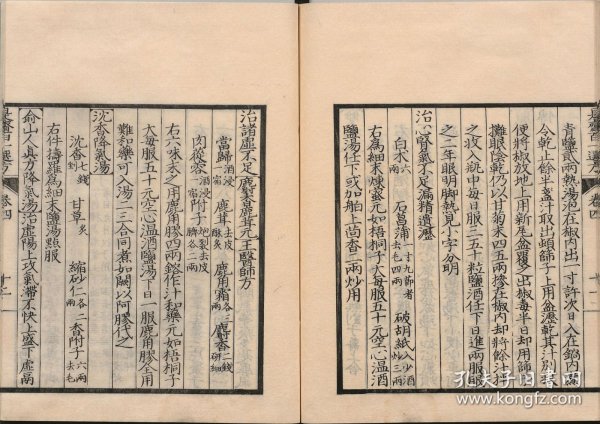 青鹽貳兩熱湯泡在椒內出一寸許次日入在銚內
令乾止餘半盞汁取出頓篩子上用盆瀝乾其汁別
便將椒放地上用新瓦盆覆多出椒毒半日却用篩
攤眼陰乾仍以甘菊末四五兩摻在椒內却將餘汁拌
之收入瓶中每日服三五十粒鹽酒任下日進兩服
之二年眼明腳熱見小字分明
治心腎氣不足漏精遺瀝
白朮六兩 石菖蒲一寸九節者去毛四兩 破胡紙入少酒炒三兩
右為細末煉蜜元如梧桐子大每服五十元空心溫酒
鹽湯任下或加舶上茴香二兩炒用
治諸虛不足麋香鹿茸元王醫師方
當歸酒浸 鹿茸去皮酥炙 鹿角霜各三兩 麝香二錢研細
肉蓯蓉酒浸 附子炮裂去皮
右六味末之用鹿角膠四兩鎔作汁和藥元如梧桐子
大每服五十元空心溫酒鹽湯下日一服鹿角膠全用
難和藥可入湯一二合同煮如闕以阿膠代之
沈香降氣湯
沈香七錢 甘草炙 縮砂仁各二兩 香附子六兩去毛
右件擣羅為細末鹽湯點服
俞山人真方降氣湯治虛陽上攻氣滯不快上盛下虛
是齋百一選方 卷四
孔夫子旧书网
www.kongfz.com